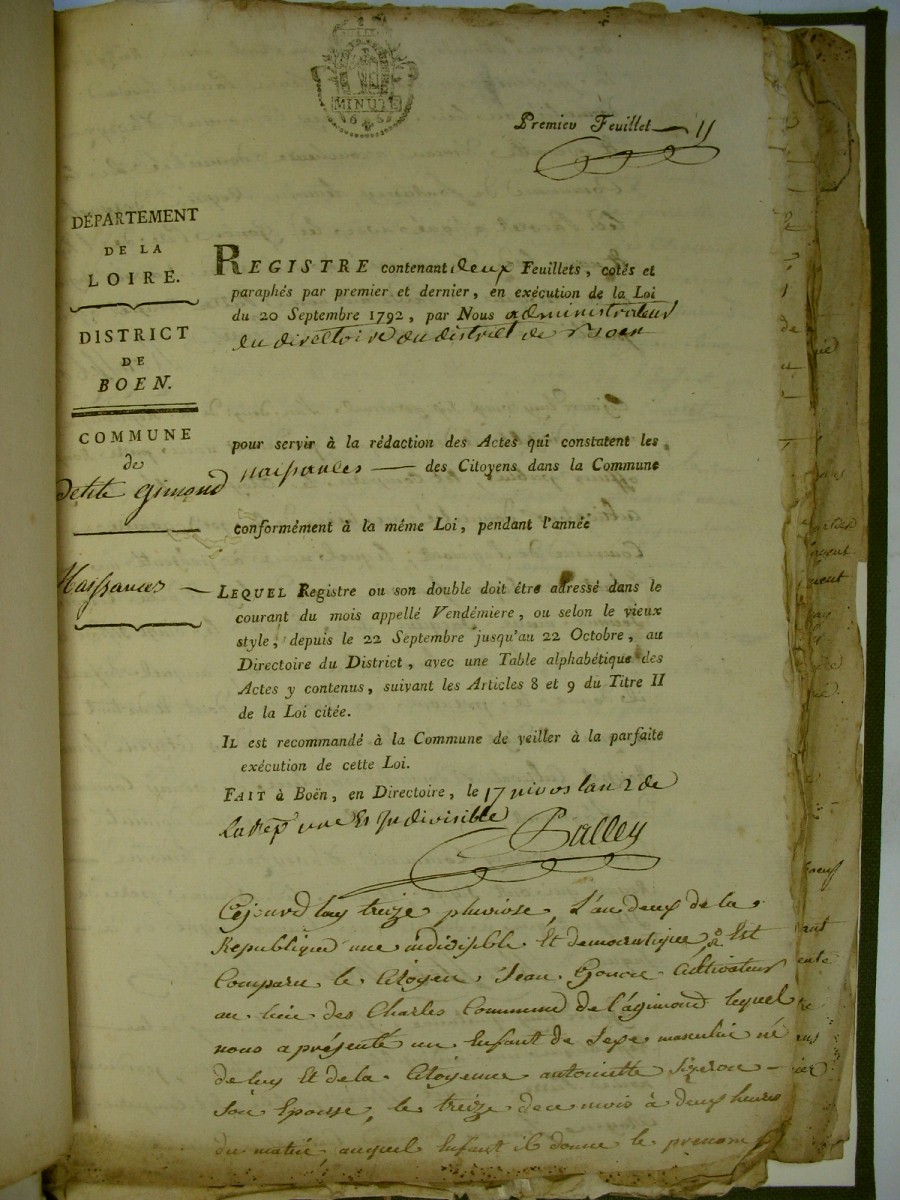 MINUTE
6 S
Premier Feuillet
DÉPARTEMENT
DE LA
LOIRE.
DISTRICT
DE
BOEN.
COMMUNE
de
petite gimond
Naissances
REGISTRE contenant deux Feuillets, cotés et
paraphés par premier et dernier, en exécution de la Loi
du 20 Septembre 1792, par Nous administrateur
du directoire du district de Boen
pour servir à la rédaction des Actes qui constatent les
naissances — des Citoyens dans la Commune
conformément à la même Loi, pendant l'année
LEQUEL Registre ou son double doit être adressé dans le
courant du mois appellé Vendémiere, ou selon le vieux
style, depuis le 22 Septembre jusqu'au 22 Octobre, au
Directoire du District, avec une Table alphabétique des
Actes y contenus, suivant les Articles 8 et 9 du Titre II
de la Loi citée.
IL est recommandé à la Commune de veiller à la parfaite
exécution de cette Loi.
FAIT à Boën, en Directoire, le 17 nivos lan 2 de
la Rep une Et Indivisible
Balley
Cejourdhuy treize pluviose, L'an deux de la
Republique une indivisible Et democratique, Est
Comparu le Citoyen Jean Gonon Cultivateur
au lieu des Charles Commune de lagimond lequel
nous a présenté un Enfant de Sexe masculin né
de luy Et de la Citoyenne antoinette Sizeron
Son Epouse, le treize du mois à deux heures
du matin auquel Enfant il donne le prenom